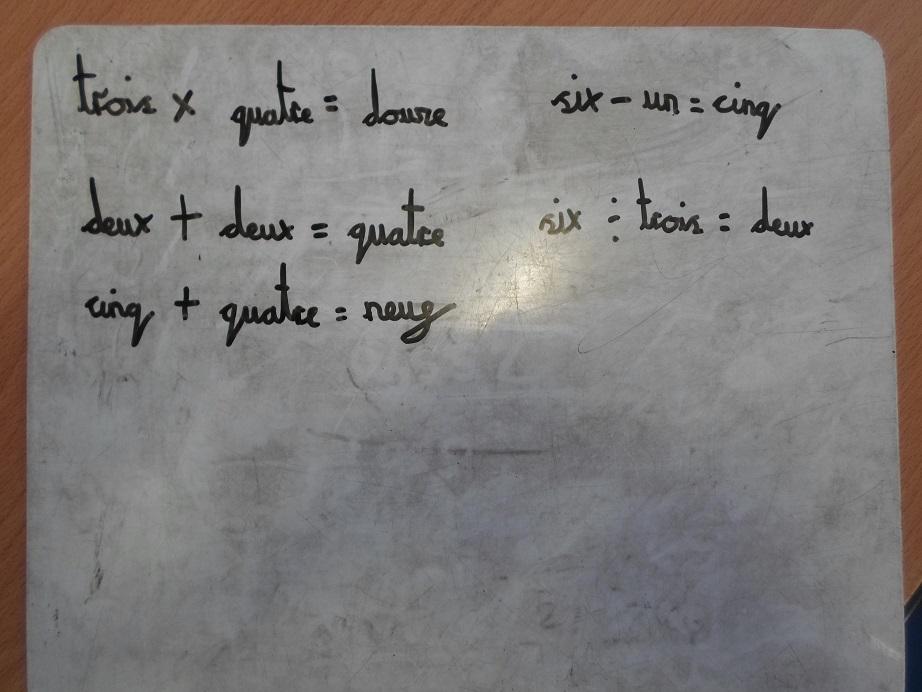 trois x quatre = douze six - un = cinq
deux + deux = quatre six ÷ trois = deux
cinq + quatre = neuf